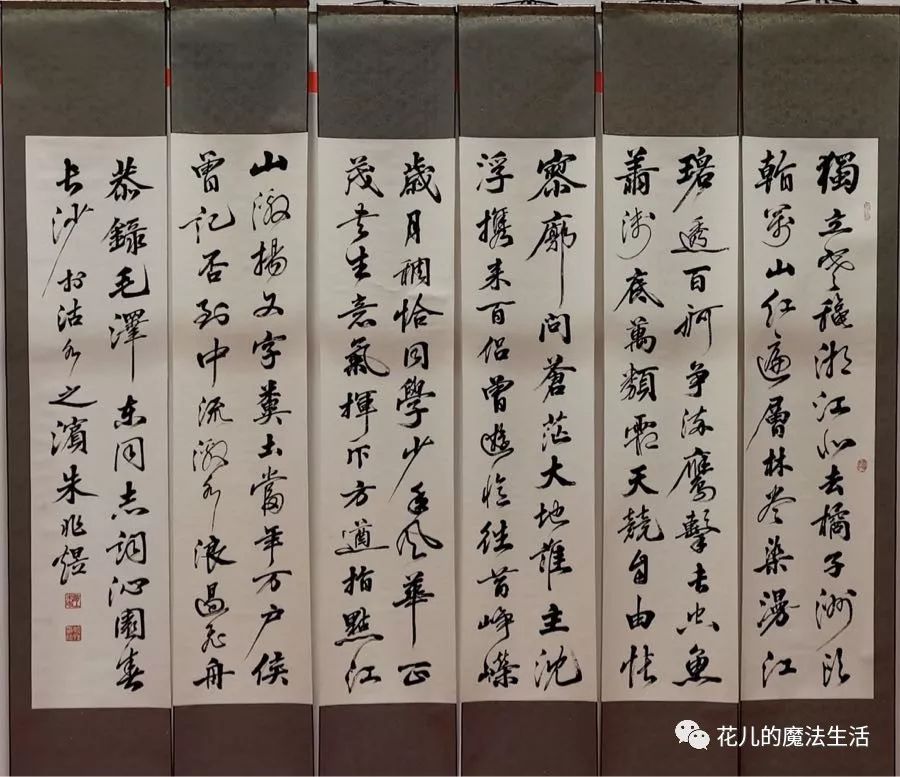 獨立寒穐湘江北去橘子洲头
看萬山红遍層林尽染漫江
碧透百舸争流鹰擊长空魚
翔浅底萬類霜天競自由悵
寥廓问蒼茫大地誰主沈
浮攜来百侣曾遊忆往昔峥嵘
歲月稠恰同學少年风華正
茂书生意氣揮斥方遒指點江
山激揚文字糞土當年万户侯
曾记否到中流激水浪遏飞舟
恭錄毛澤东同志词沁園春
长沙於沽水之濱朱兆
花儿的魔法生活